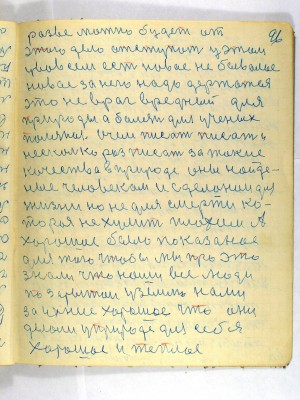 96
разве можно будет от
этого дело отступит у этом
цвов сем ест новое не бывалое
новое за него надо держатся
это не враг вредный для
природы а болеят для ученых
писат писат и
несколко раз писат за такие
качества в природе они найде-
ные человеком и сделаной для
жизни но не для смерти ко-
торая не хулит плохем А
хорошое было показаное
для того чтобы мы про это
знали что наши все люди
по закрытом у землю нами
за ихние хорошое что они
делали у природе для себя
хорошое и теплое